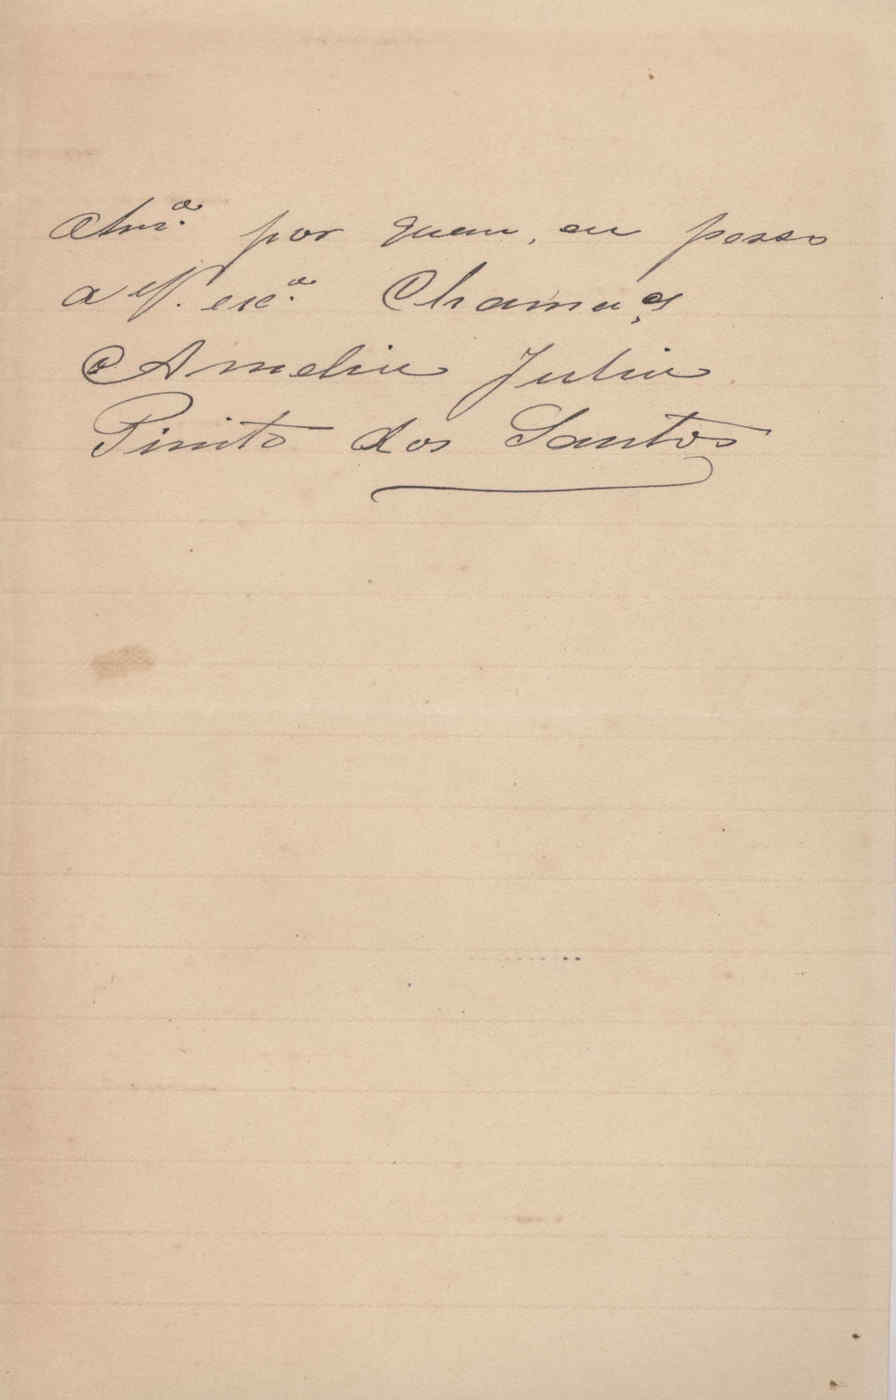 Am.ª por quem, eu posso
a V. exc.ª Chama-se
Amelia Julia
Pinito dos Santos